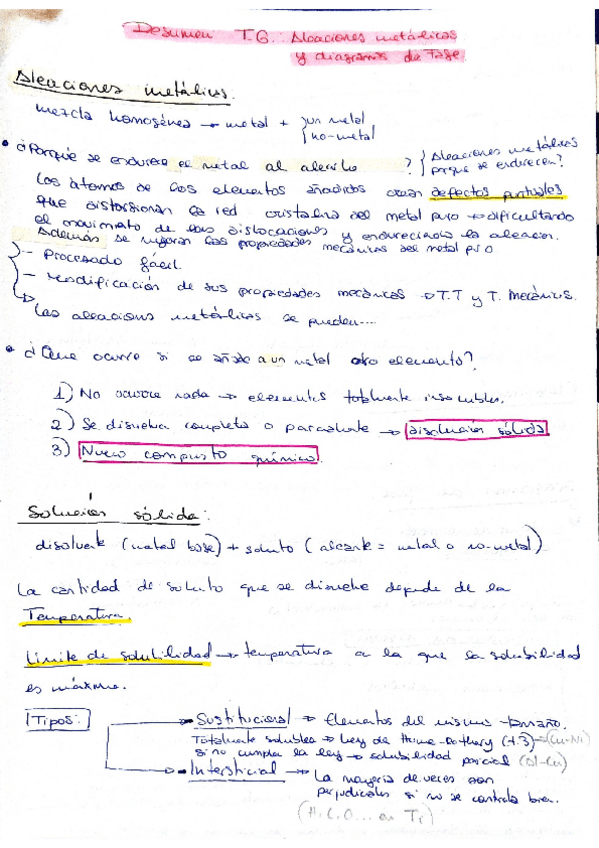 Resumen T.6.: Aleaciones metálicas
y diagramas de Fase.
Aleaciones metálicas.
mezcla homogénea → metal + un metal
no-metal
• ¿Porqué se endurece el metal al alearlo? Aleaciones metálicas
porque se endurecen?
Los átomos de los elementos añadidos crean defectos puntuales
que distorsionan la red cristalina del metal puro → dificultando
el movimiento de las dislocaciones y endureciendo la aleación.
Además se mejoran las propiedades mecánicas del metal puro.
- Procesado fácil.
- Modificación de sus propiedades mecánicas → T.T y T. Mecánicos.
Las aleaciones metálicas se pueden....
• ¿Que ocurre si se añade a un metal otro elemento?
1) No ocurre nada → elementos totalmente insolubles.
2) Se disuelva completa o parcialmente → disolución sólida
3) Nuevo compuesto químico.
Solución sólida:
disolvente (metal base) + soluto (aleante = metal o no-metal)
La cantidad de soluto que se disuelve depende de la
Temperatura.
Límite de solubilidad → temperatura a la que la solubilidad
es máxima.
Tipos:
Sustitucional → Elementos del mismo tamaño.
Totalmente solubles → Ley de Hume-Rothery (t.3) = (Cu-Ni)
si no cumpla la ley → solubilidad parcial (Al-Cu)
Intersticial → La mayoría de veces son
perjudiciales si no se controla bien.
(H.C.O... en Ti)